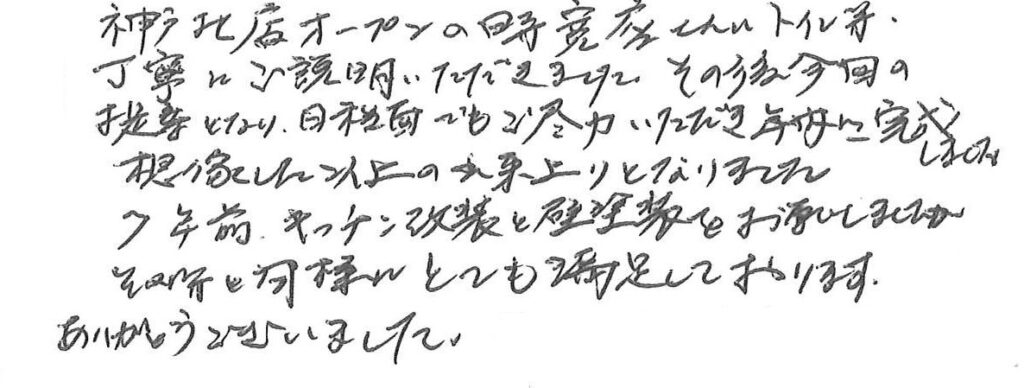 神戸北店オープンの時寛座さんにトイレ等.
丁寧にご説明いただきました。その後今回の
提案となり、日程面でもご尽力いただき年内に完成しました
想像した以上の出来上りとなりました
7年前、キッチン改装と壁塗装をお願いしましたが
その時と同様にとても満足しております.
ありがとうございました。